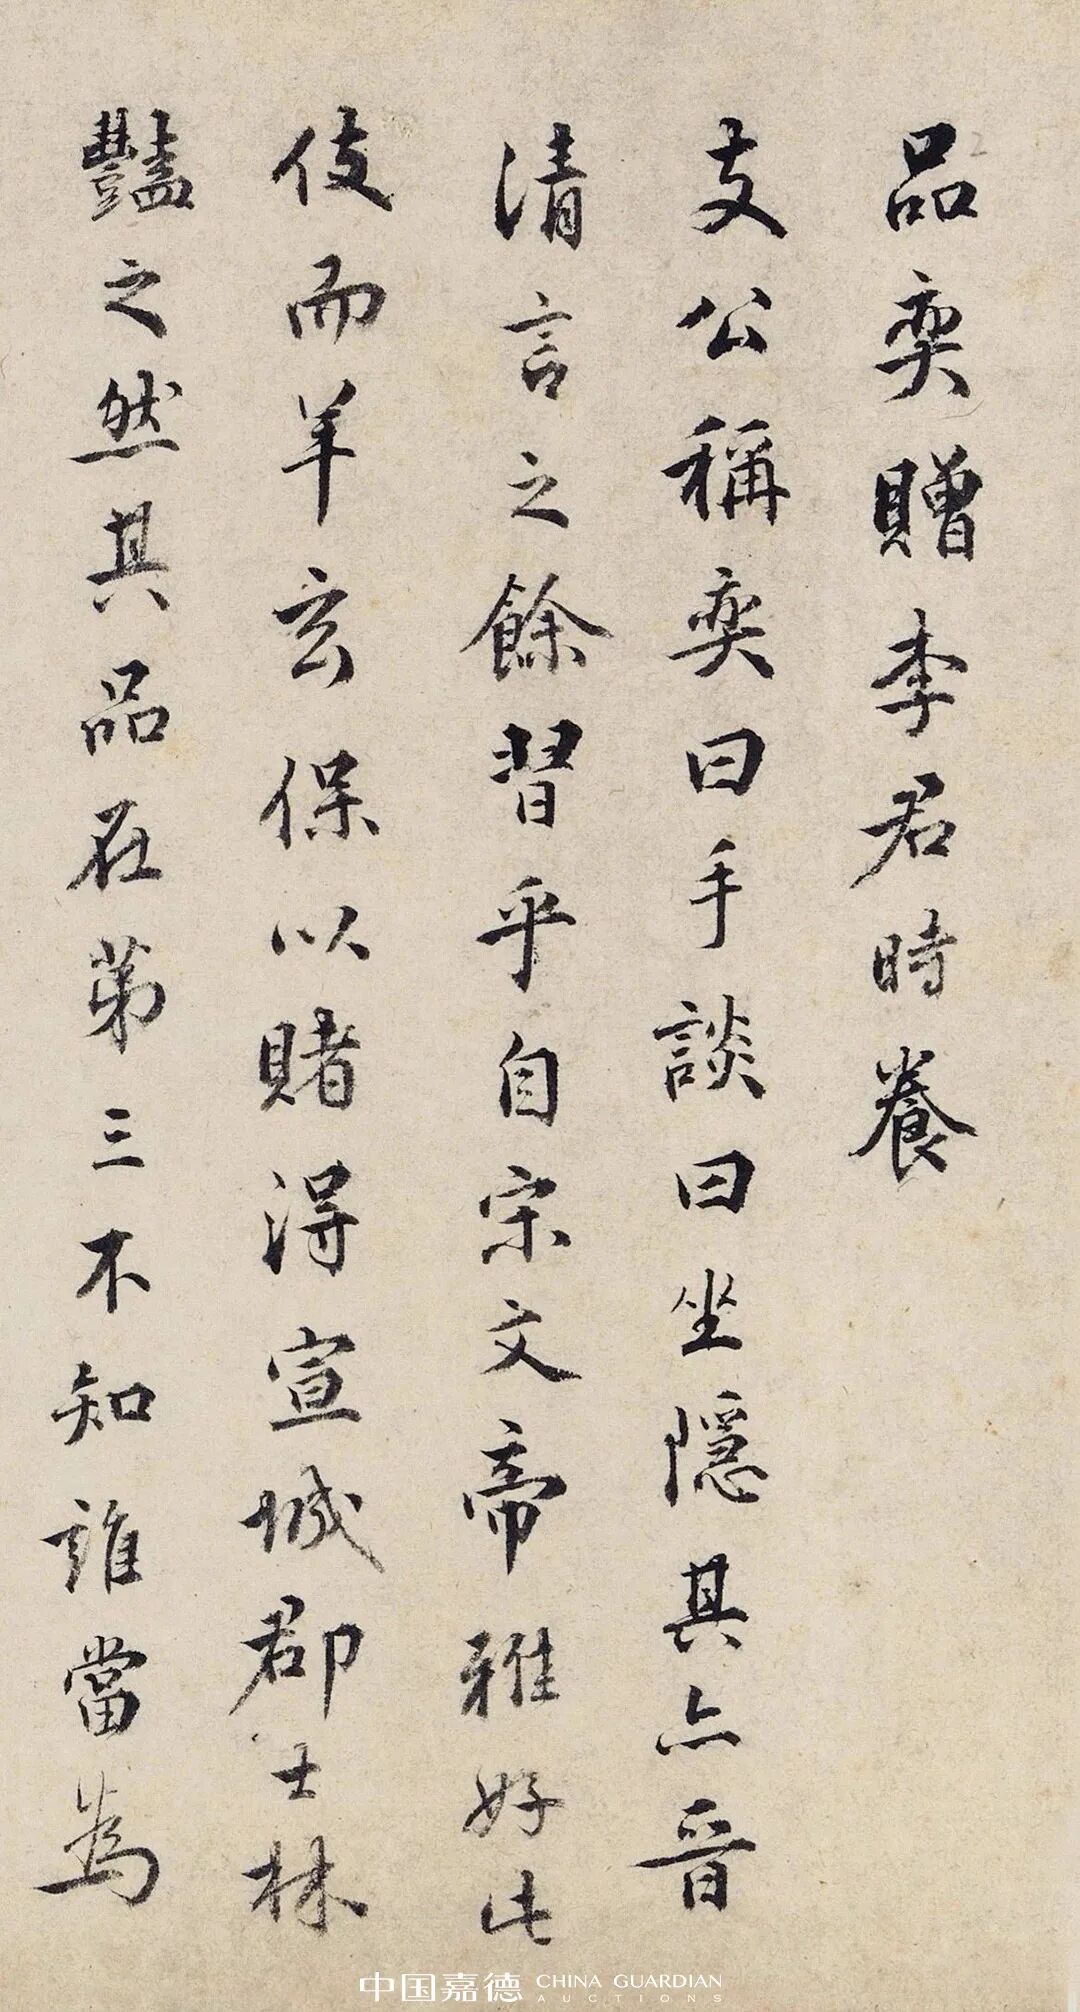 品奕贈李君時養
支公稱奕曰手談曰坐隱其亦晉
清言之餘習乎自宋文帝雅好此
伎而羊玄保以賭得宣城郡士林
豔之然其品在第三不知誰當為
中国嘉德 CHINA GUARDIAN
AUCTIONS